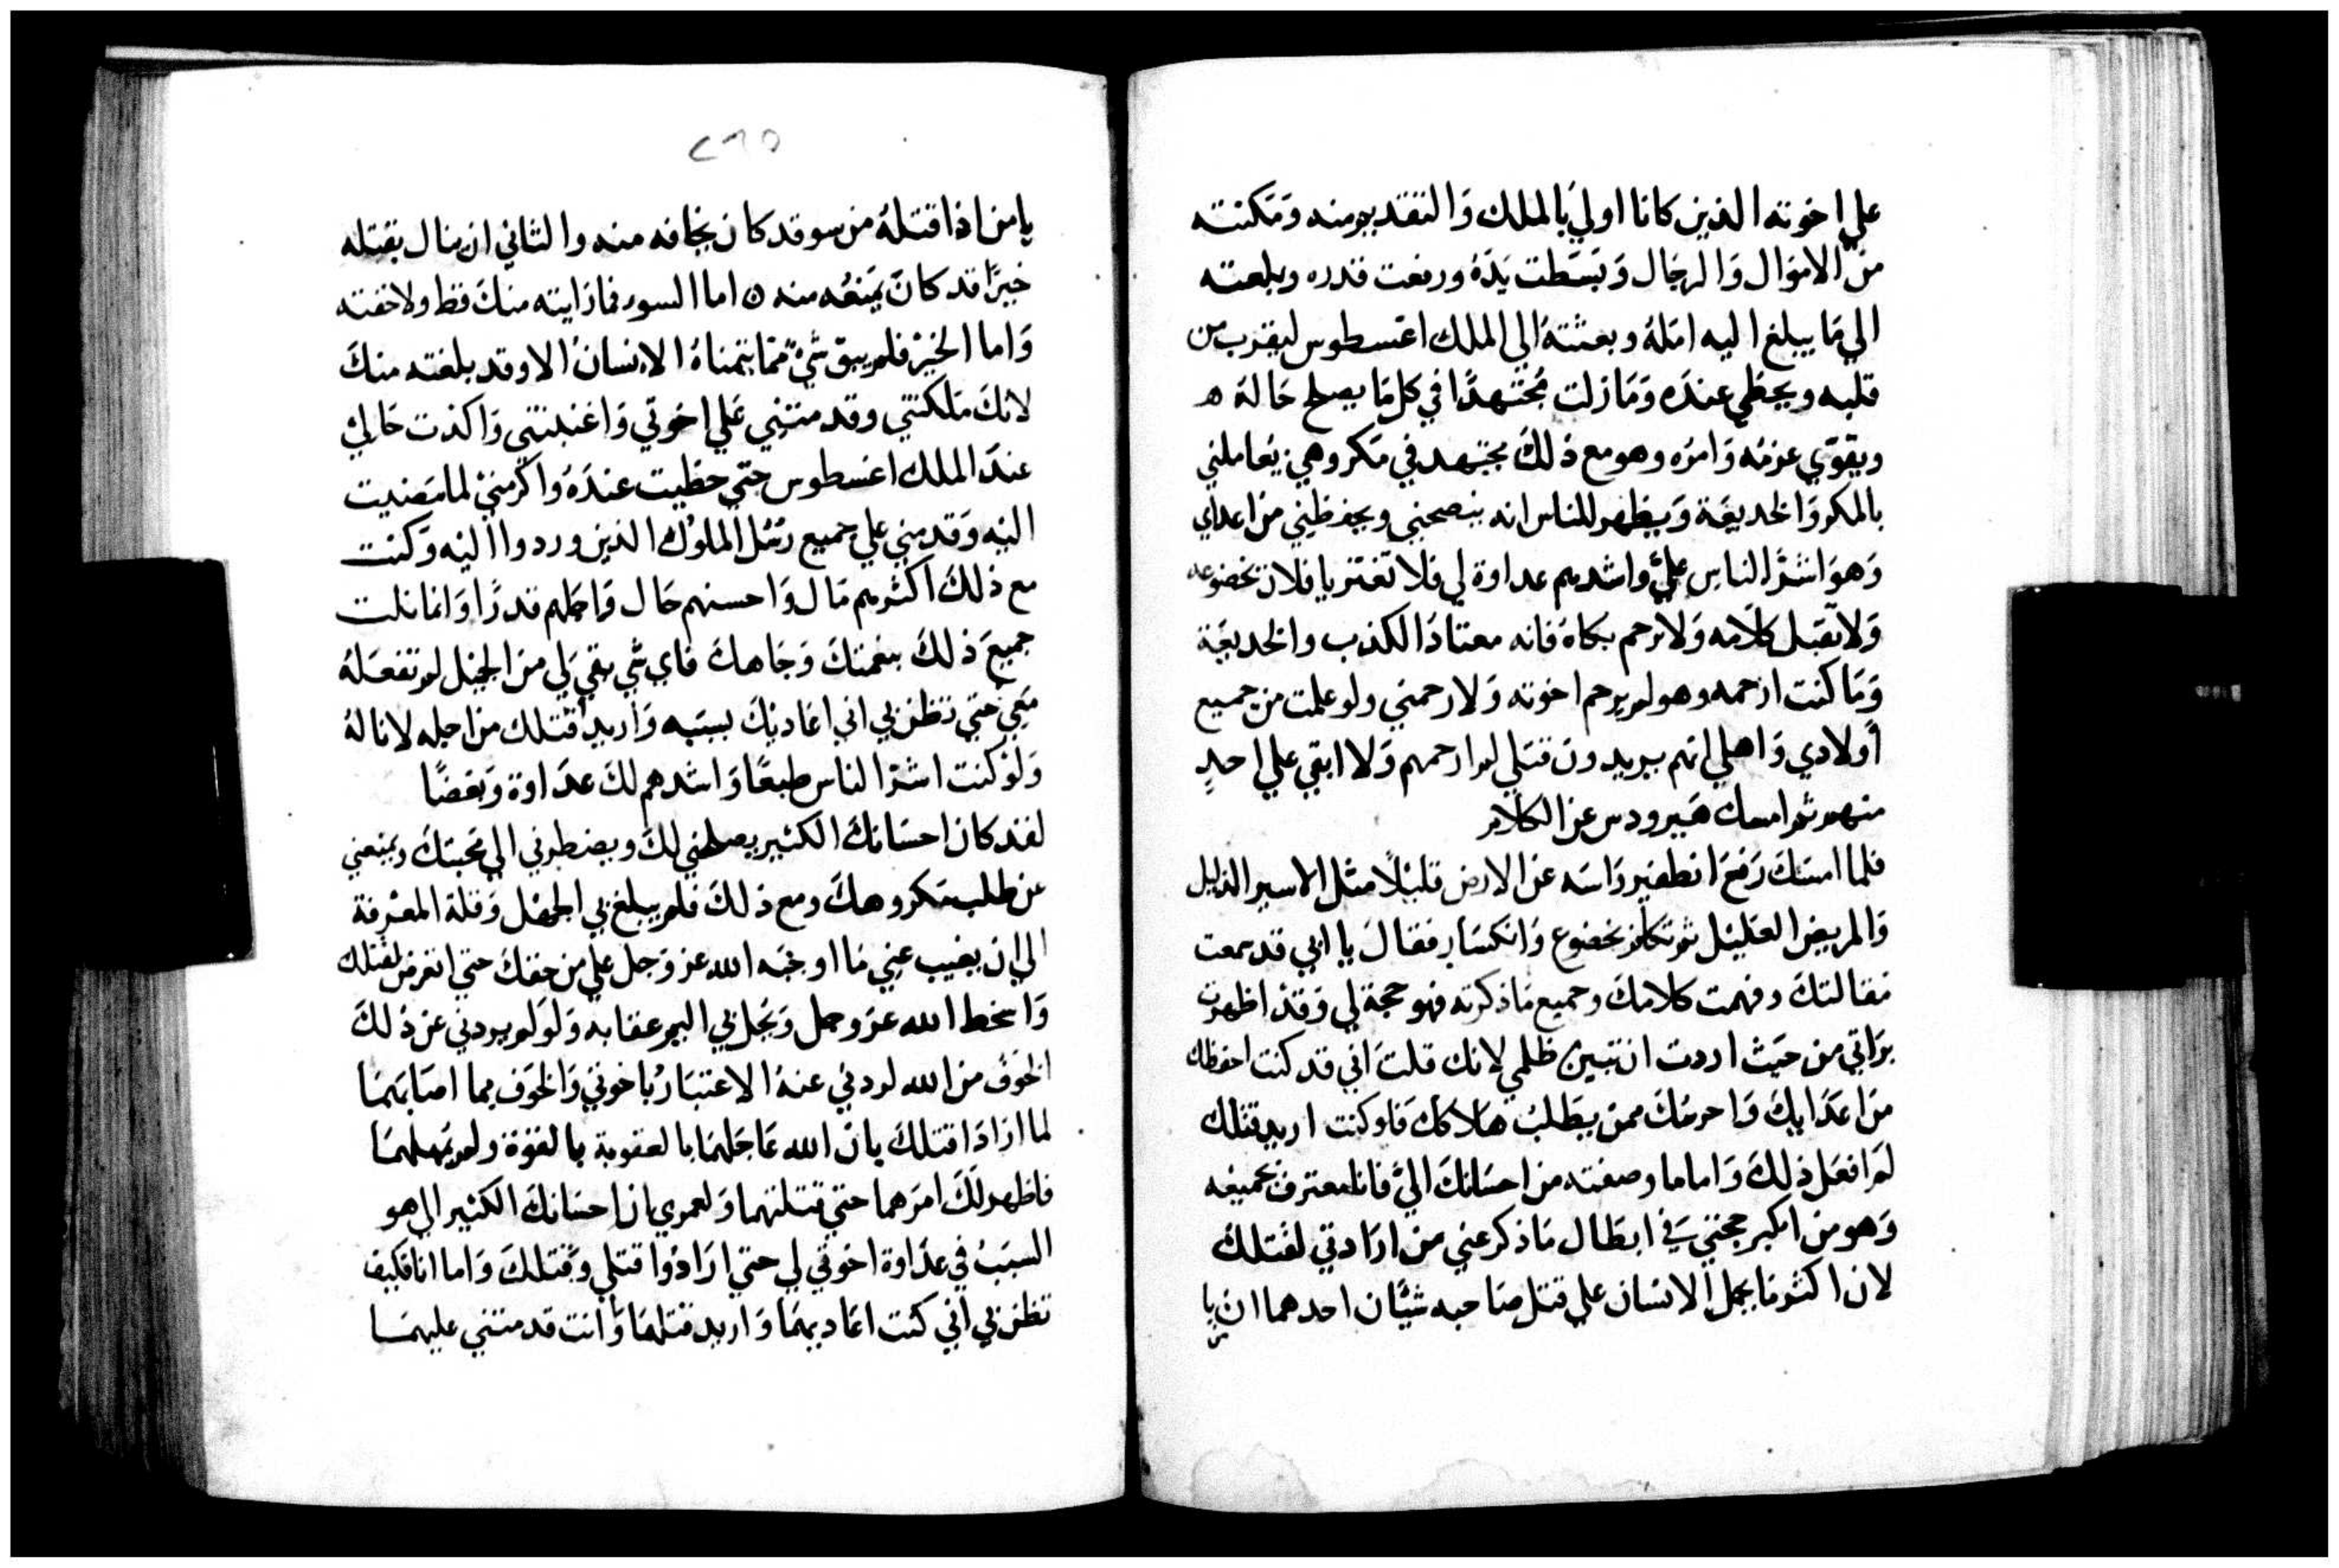 علي اخوته الذين كانا اولي بالملك والتقديم منه ومكنته
من الاموال والرجال وبسطت يده ورفعت قدره وبلغته
الي ما يبلغ اليه امله وبعثته الي الملك اغسطوس ليقرب من
قلبه ويحظي عنده وما زلت مجتهدًا في كل ما يصلح حاله ه
ويقوّي عزمه وامره وهو مع ذلك مجتهد في مكروهي يعاملني
بالمكر والخديعة ويظهر للناس انه ينصحني ويحفظني من اعداي
وهو اشرّ الناس عليّ واشدهم عداوة لي فلا تغتر يا فلان بخضوعه
ولا تقبل كلامه ولا ترحم بكاه فانه معتاد الكذب والخديعة
وما كنت ارحمه وهو لم يرحم اخوته ولا رحمني ولو علمت من جميع
أولادي واهلي انهم يريدون قتلي لم ارحمهم ولا ابقي علي احدٍ
منهم ثم امسك هيرودس عن الكلام
فلما امسك رفع انطفير راسه عن الارض قليلًا مثل الاسير الذليل
والمريض العليل ثم تكلم بخضوع وانكسار فقال يا ابي قد سمعت
مقالتك وفهمت كلامك وجميع ما ذكرته فهو حجة لي وقد اظهرت
براتي من حيث اردت ان تبين ظلمي لانك قلت اني قد كنت احفظك
من اعدايك واحرسك ممن يطلب هلاكك فلو كنت اريد قتلك
لم افعل ذلك واما ما وصفته من احسانك اليّ فانا معترف بجميعه
وهو من اكبر حججي في ابطال ما ذكر عني من ارادتي لقتلك
لان اكثر ما يحمل الانسان علي قتل صاحبه شيًان احدهما ان يا
٢٦٥
يامن اذا قتله من سو قد كان يخافه منه والثاني ان ينال بقتله
خيرًا قد كان يمنعه منه ٥ اما السور فما رايته منك قط ولا خفته
واما الخير فلم يبق شيً مما يتمناه الانسان الا وقد بلغته منك
لانك ملكتني وقدمتني علي اخوتي واغنيتني واكدت حالي
عند الملك اغسطوس حتي حظيت عنده واكرمني لما مضيت
اليه وقدمني علي جميع رسل الملوك الذين وردوا اليه وكنت
مع ذلك اكثرهم مال واحسنهم حال واجلهم قدرًا وانما نلت
جميع ذلك بنعمتك وجاهك فاي شي بقي لي من الجميل لم تفعله
معي حتي تظن بي اني اعاديك بسببه واريد اقتلك من اجله لاناله
ولو كنت اشر الناس طبعًا واشدهم لك عداوة وبغضًا
لقد كان احسانك الكثير يصلحني لك ويضطرني الي محبتك ويمنعني
عن طلب مكروهك ومع ذلك فلم يبلغ بي الجهل وقلة المعرفة
الي ان يغيب عني ما اوجبه الله عز وجل علي من حقك حتي اتعرض لقتلك
واسخط الله عز وجل ويحل بي اليم عقابه ولو لم يردني عن ذلك
الخوف من الله لردني عنه الاعتبار باخوتي والخوف مما اصابهما
لما ارادا قتلك بان الله عاجلهما بالعقوبة بالقوة ولم يمهلهما
فاظهر لك امرهما حتي قتلتهما ولعمري ان احسانك الكثير الي هو
السبب في عداوة اخوتي لي حتي ارادوا قتلي وقتلك واما انا فكيف
تظن بي اني كنت اعاديهما واريد قتلهما وانت قدمتني عليهما